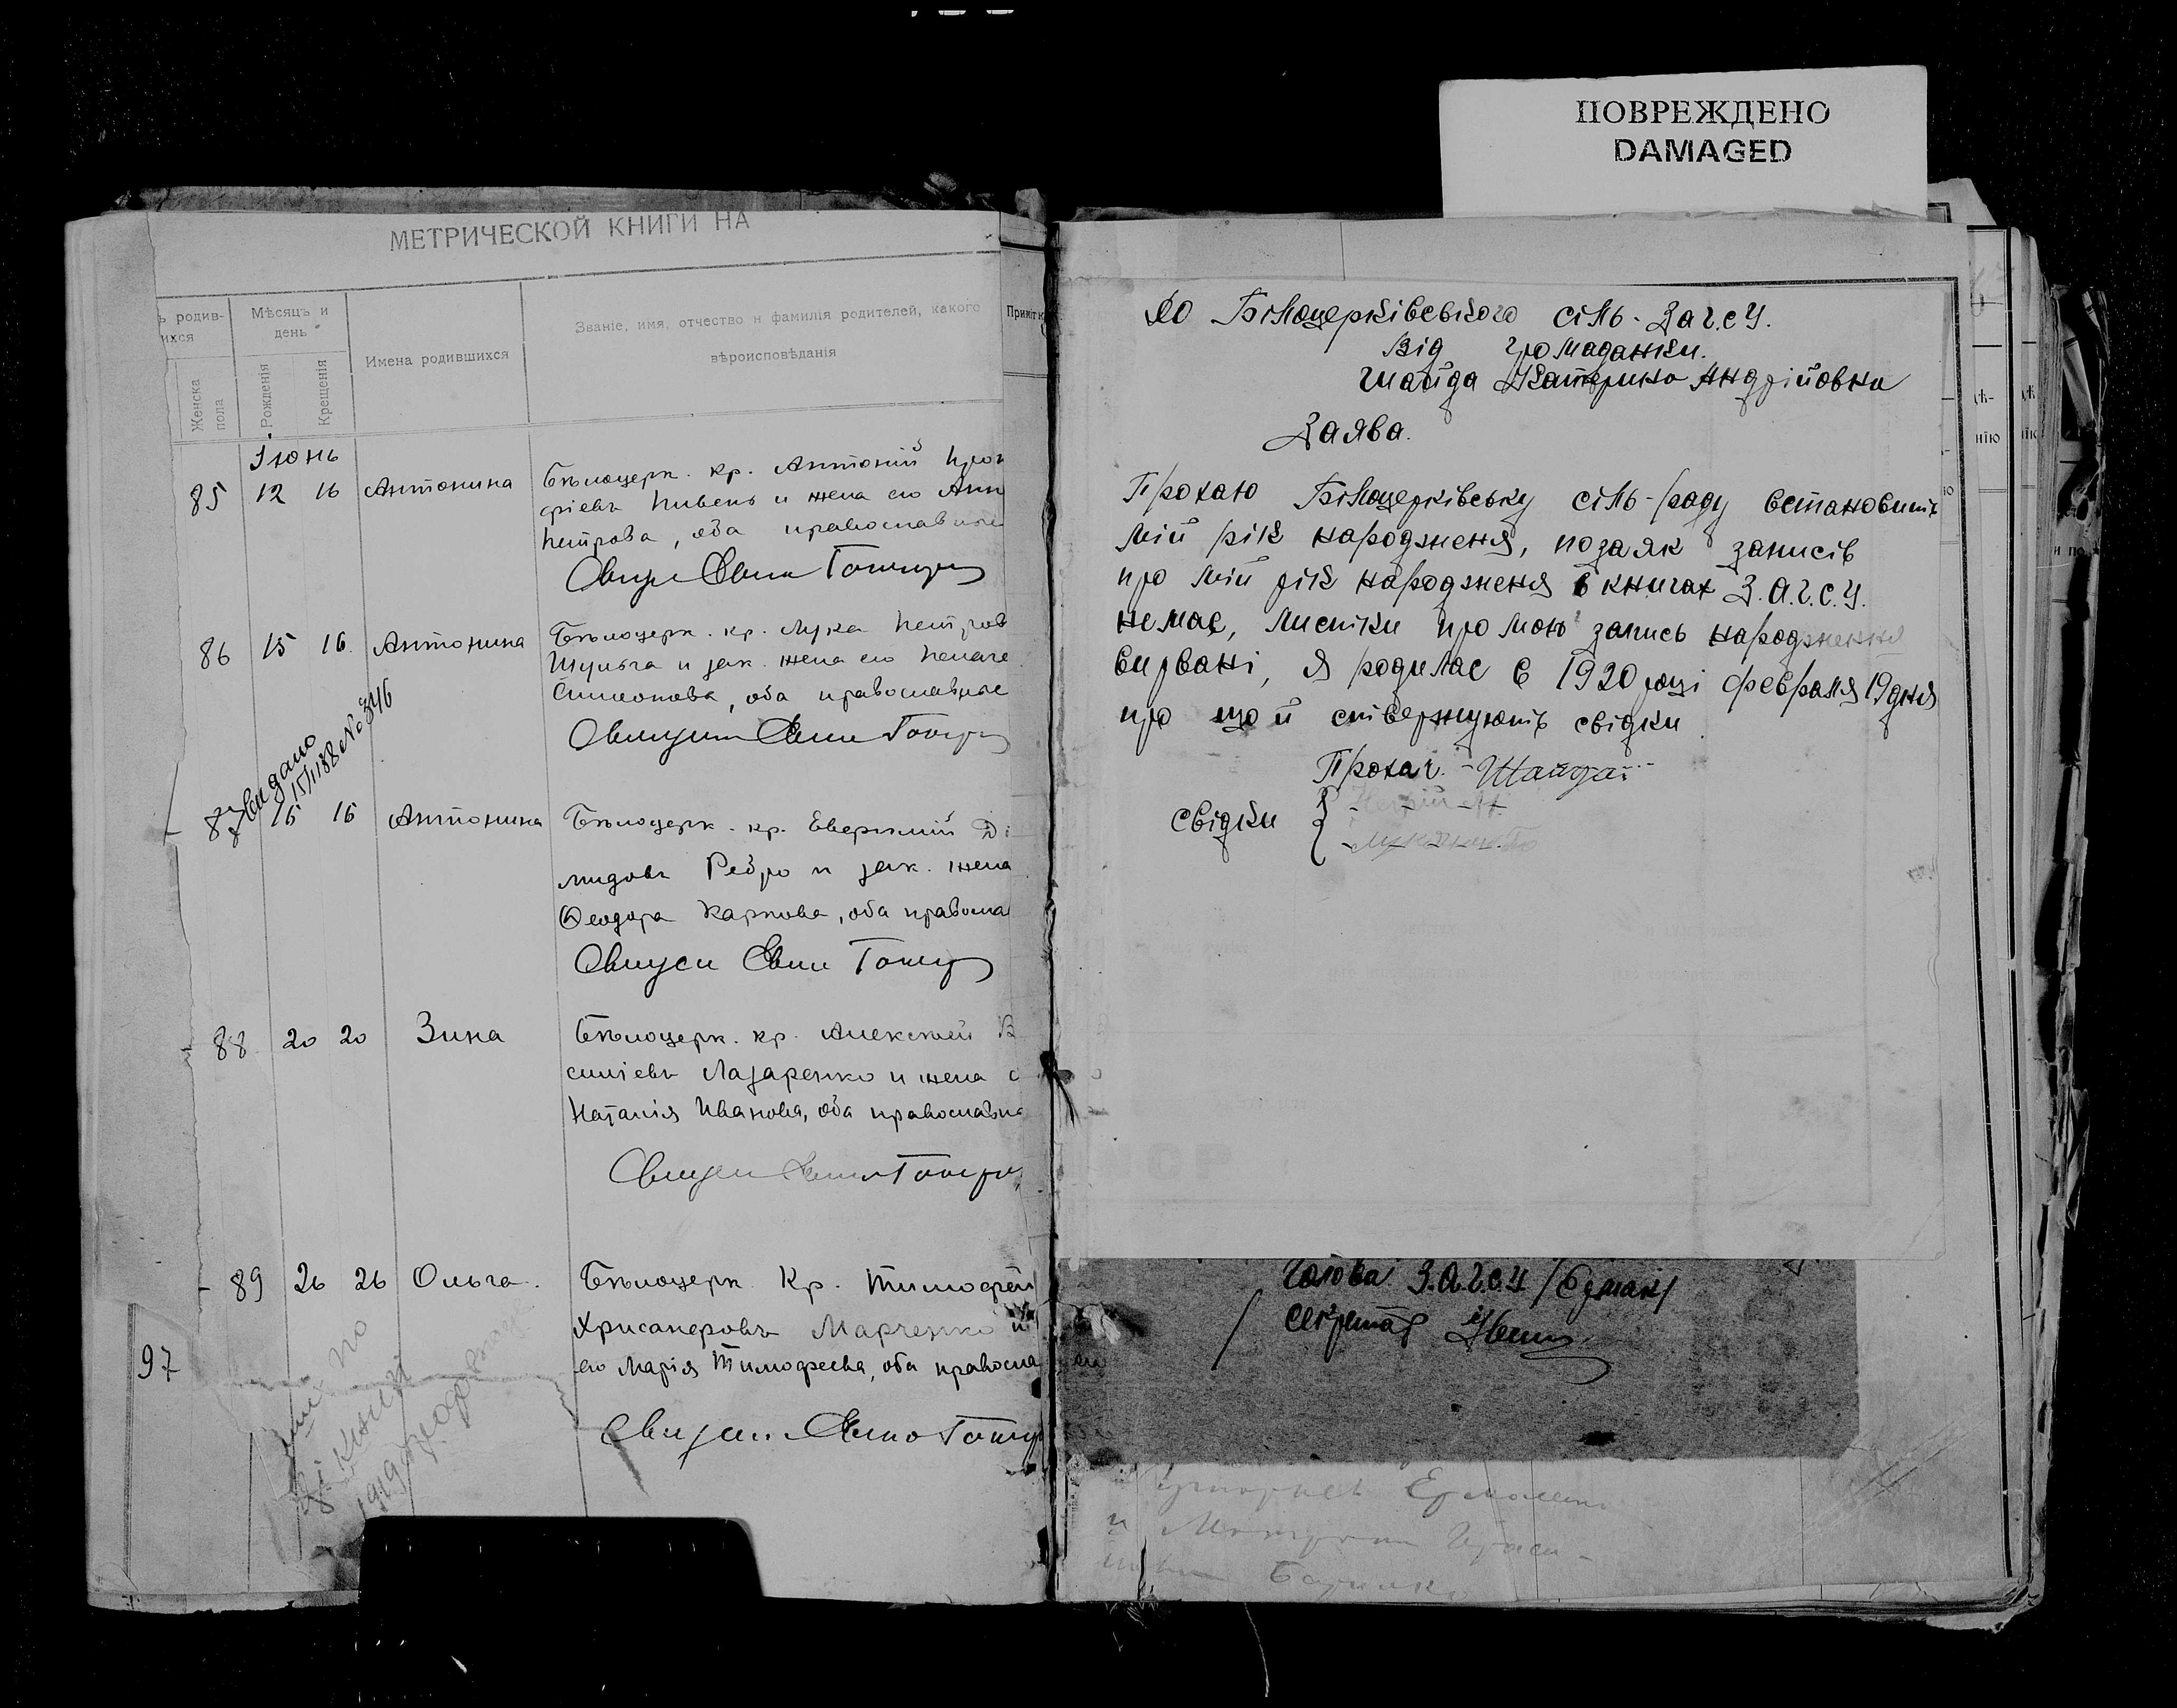 ПОВРЕЖДЕНО
DAMAGED
МЕТРИЧЕСКОЙ КНИГИ НА
ъ родив-
ихся
Мѣсяцъ и
день
Имена родившихся
Званіе, имя, отчество и фамилія родителей, какого
вѣроисповѣданія
Женска
пола
Рожденія
Крещенія
Іюнь
85 12 16 Антонина Бѣлоцерк. кр. Антоній
фіевъ Пивень и жена его Анн
Петрова, оба православные
86 15 16 Антонина Бѣлоцерк. кр. Лука Петров
Шульга и зак. жена его Пелаге
Симеонова, оба православные
Видано
15/II 88 № 346
87 15 16 Антонина Бѣлоцерк. кр. Евгеній Ді
мидовъ Ребро и зак. жена
Ѳеодора Карпова, оба правосла
88 20 20 Зина Бѣлоцерк. кр. Алексѣй В
силіевъ Лазаренко и жена
Наталія Иванова, оба православн
89 26 26 Ольга Бѣлоцерк. Кр. Тимофей
Хрисанеровъ Марченко и
его Марія Тимофеева, оба правосла
97
по
книзі
1919
До Білоцерківського сіль-Загсу.
Від громаданки.
Шайда Катерина Андрійовна
Заява.
Прохаю Білоцерківську сіль-раду встановить
мій рік народженя, позаяк записів
про мій рік народженя в книгах З.А.Г.С.У.
немає, листки про мою запись народження
вирвані, я родилас в 1920 році февраля 19 дня
про що й ствержують свідки
Прохач. Шайда
свідки
Голова З.А.Г.С.У
секретар